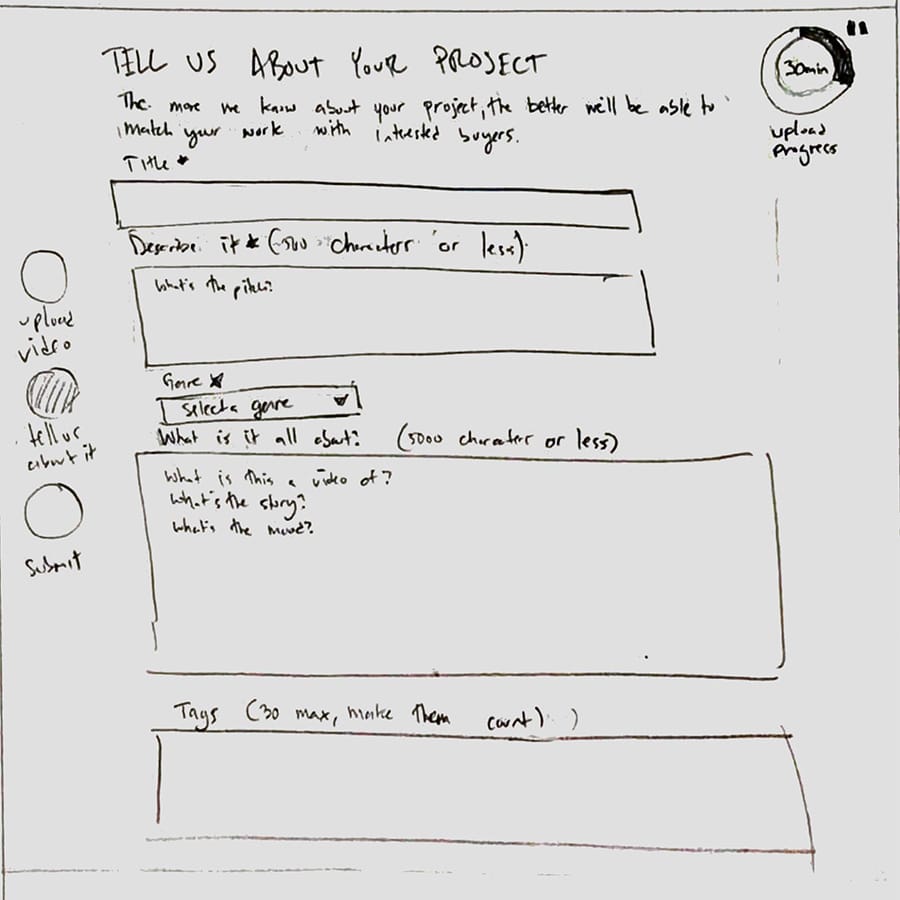 TELL US ABOUT YOUR PROJECT
The more we know about your project, the better we'll be able to
match your work with interested buyers.
30min
upload
progress
Title *
Describe it * (500 characters or less)
What's the pitch?
upload
video
tell us
about it
submit
Genre *
Select a genre
What is it all about? (5000 character or less)
What is this a video of?
What's the story?
What's the mood?
Tags (30 max, make them count)